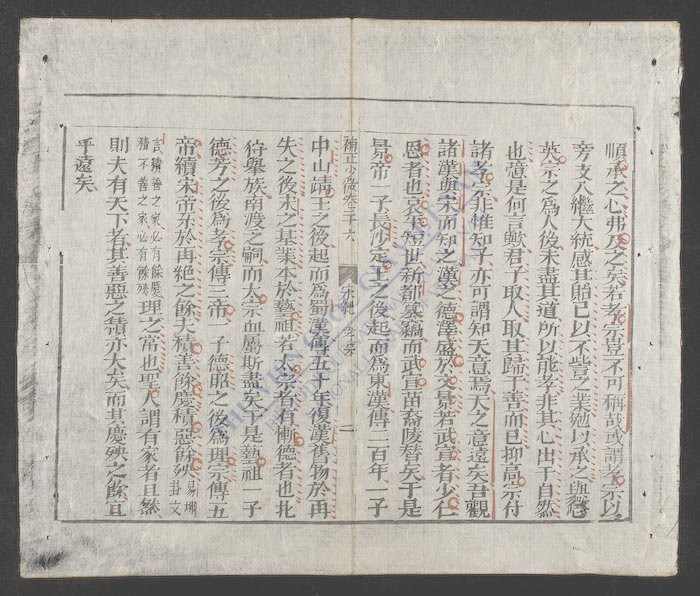 順承之心弗及之矣若孝宗豈不可稱哉或謂孝宗以
旁支入繼大統感其貽己以不訾之業勉以承之與
英宗之爲人後未盡其道所以能孝非其心出于自然
也意是何言歟君子取人取其歸于善而已抑高宗付
諸孝宗非惟知子亦可謂知天意焉天之意遠矣吾觀
諸漢與宋而知之漢之德澤盛於文景若武宣者少仁
恩者也哀平短世新都纂竊而武宣苗裔陵替矣于是
景帝一子長沙定王之後起而爲東漢傳二百年一子
補正少微卷三十六
二
中山靖王之後起而爲蜀漢傳五十年復漢舊物於再
失之後宋之基業本於藝祖若太宗者有慚德者也北
狩舉族南渡之嗣而太宗血屬斯盡矣于是藝祖一子
德芳之後爲孝宗傳三帝一子德昭之後爲理宗傳五
帝續宋帝祚於再絶之餘夫積善餘慶積惡餘殃易坤卦文
言積善之家必有餘慶積不善之家必有餘殃理之常也聖人謂有家者且然
則夫有天下者其善惡之積亦大矣而其慶殃之餘豈
乎遠矣